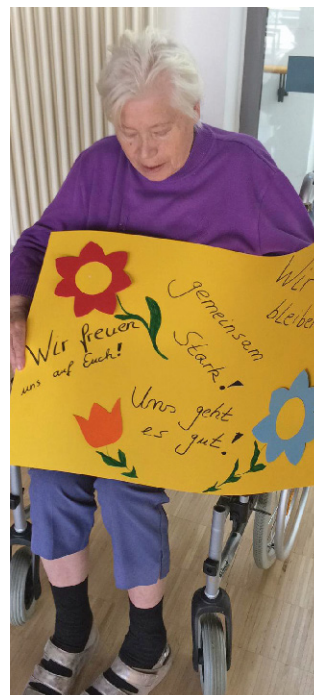 Wir freuen
uns auf Euch!
gemeinsam
Stark!
Wir
bleiben
Uns geht
es gut!